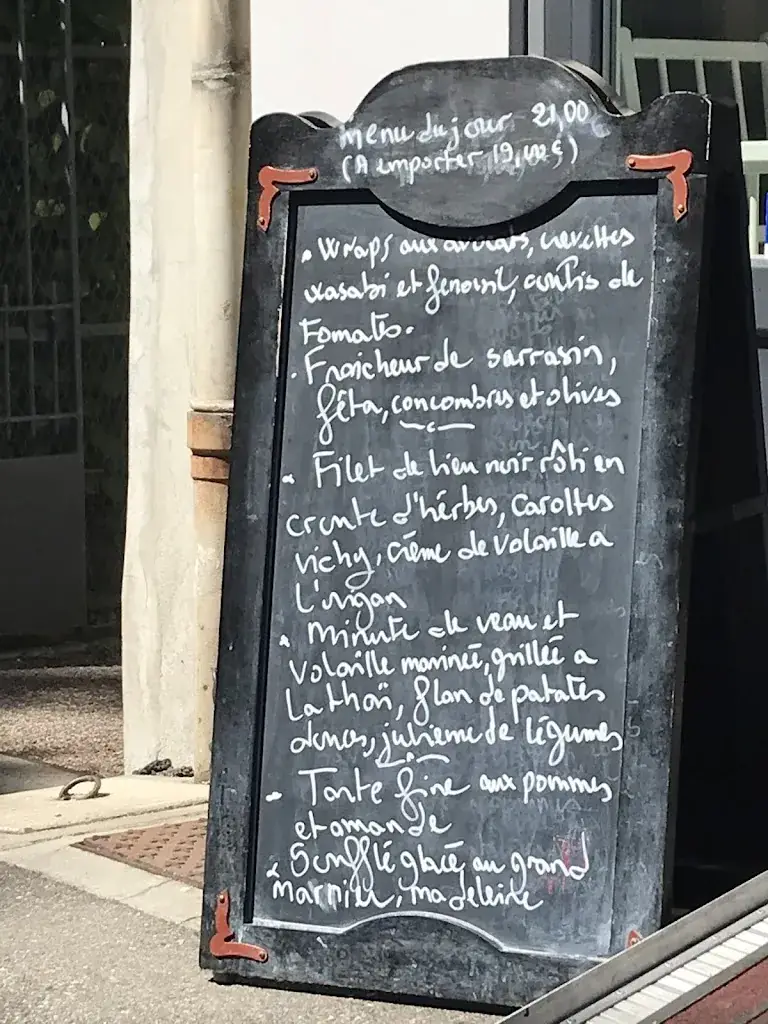 menu du jour 21,00
(A emporter 19,00€)
• Wraps aux avocats, crevettes
wasabi et fenouil, confits de
Tomates.
• Fraicheur de sarrasin,
fêta, concombres et olives
• Filet de lieu noir rôti en
croute d'hérbes, carottes
vichy, crème de volaille a
l'origan
• Minute de veau et
volaille marinée, grillée a
la thaï, flan de patates
douces, julienne de légumes
• Tarte fine aux pommes
et amande
• Soufflé glacé au grand
marnier, madeleine